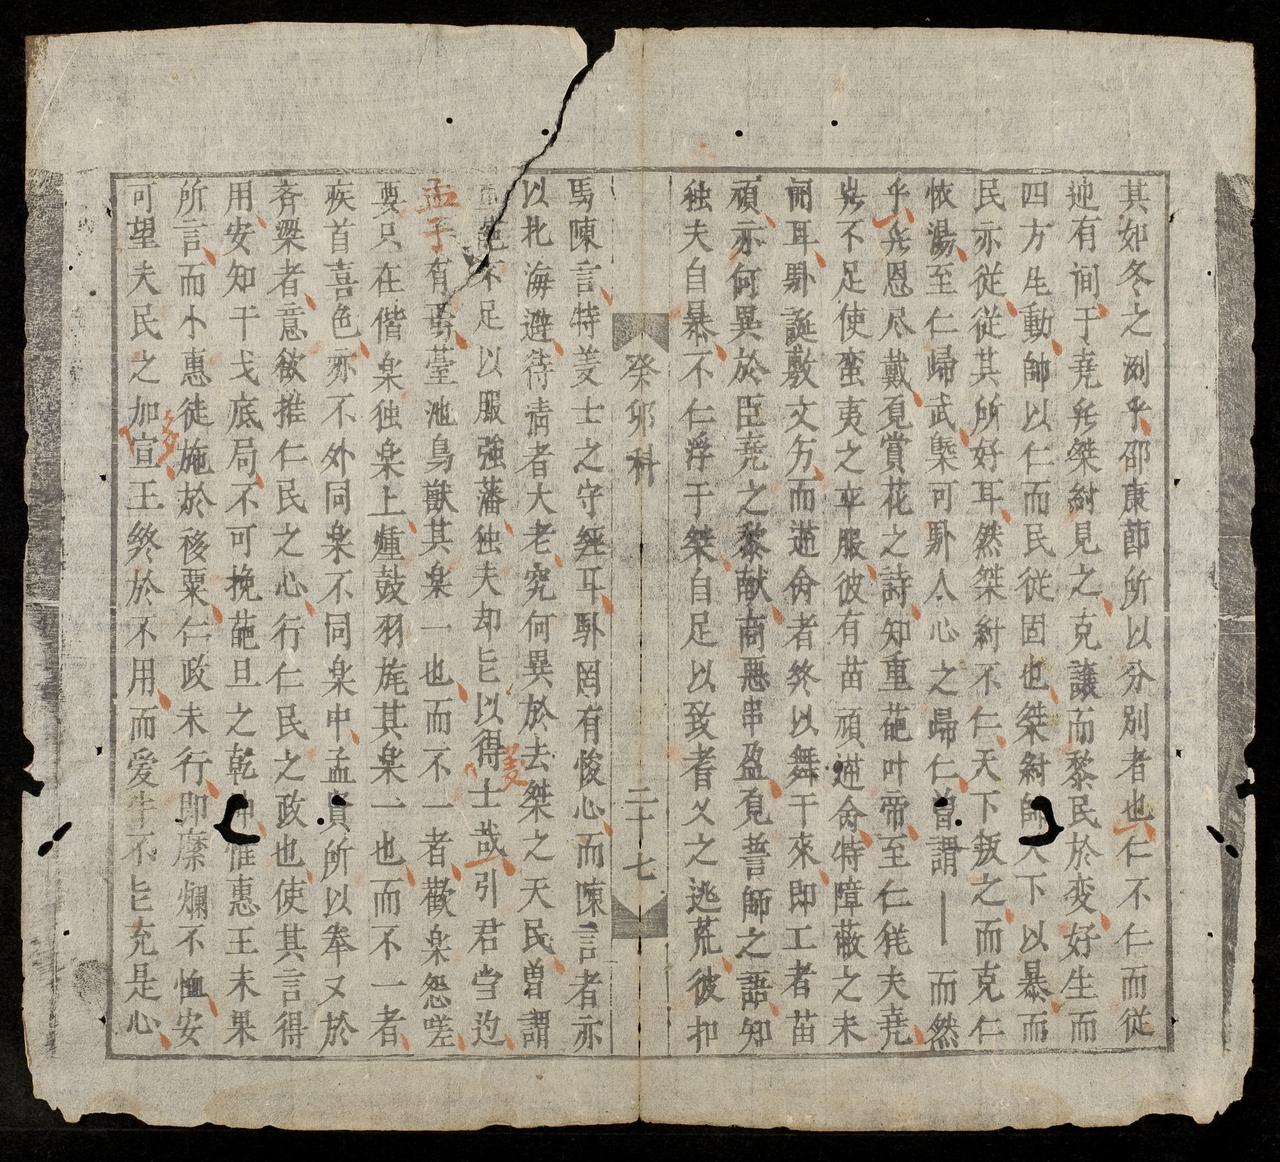 其如冬之冽乎邵康節所以分别者也仁不仁而従
迎有间于堯舜桀紂見之克讓而黎民於変好生而
四方生動師以仁而民従固也桀紂帥天下以暴而
民亦従従其所好耳然桀紂不仁天下叛之而克仁
恢湯至仁歸武槩可卧人心之歸仁曾謂一而然
乎舜恩尽戴覔賞花之詩知重葩叶帝至仁毪夫堯
舜不足使蛮夷之卒服彼有苗頑逆命特障蔽之未
開耳卧誕敷文方而逆命者終以舞干來即工者苗
頑亦何異於臣堯之黎献商悪串盈覔誓師之語知
独夫自暴不仁浮于桀自足以致耆乂之逃荒彼扣
癸卯科
二十七
馬陳言特姜士之守経耳卧罔有悛心而陳言者亦
以北海避待淸者大老究何異於去桀之天民曽謂
不足以服強藩独夫却𠤎以得士哉引君當迨
孟子有臺池鳥獣其楽一也而不一者歡楽怨嗟
要只在偕楽独楽上煄鼓羽旄其楽一也而不一者
疾首喜色亦不外同楽不同楽中孟賁所以奉又於
吝梁者意欲推仁民之心行仁民之政也使其言得
用安知干戈底局不可挽葩旦之乾惟惠王未果
所言而小惠徒施於移粟仁政未行即縻爛不恤安
可望夫民之加多宣王終於不用而爱牛不𠤎充是心